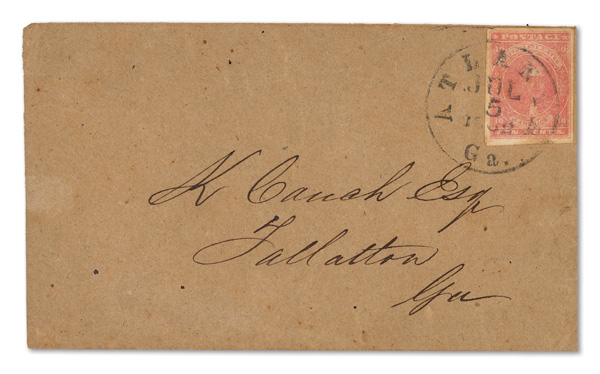 POSTAGE
TEN CENTS
ATLAN
JUL
5
Ga.
K Cauch Esq
Tallatton
Ga